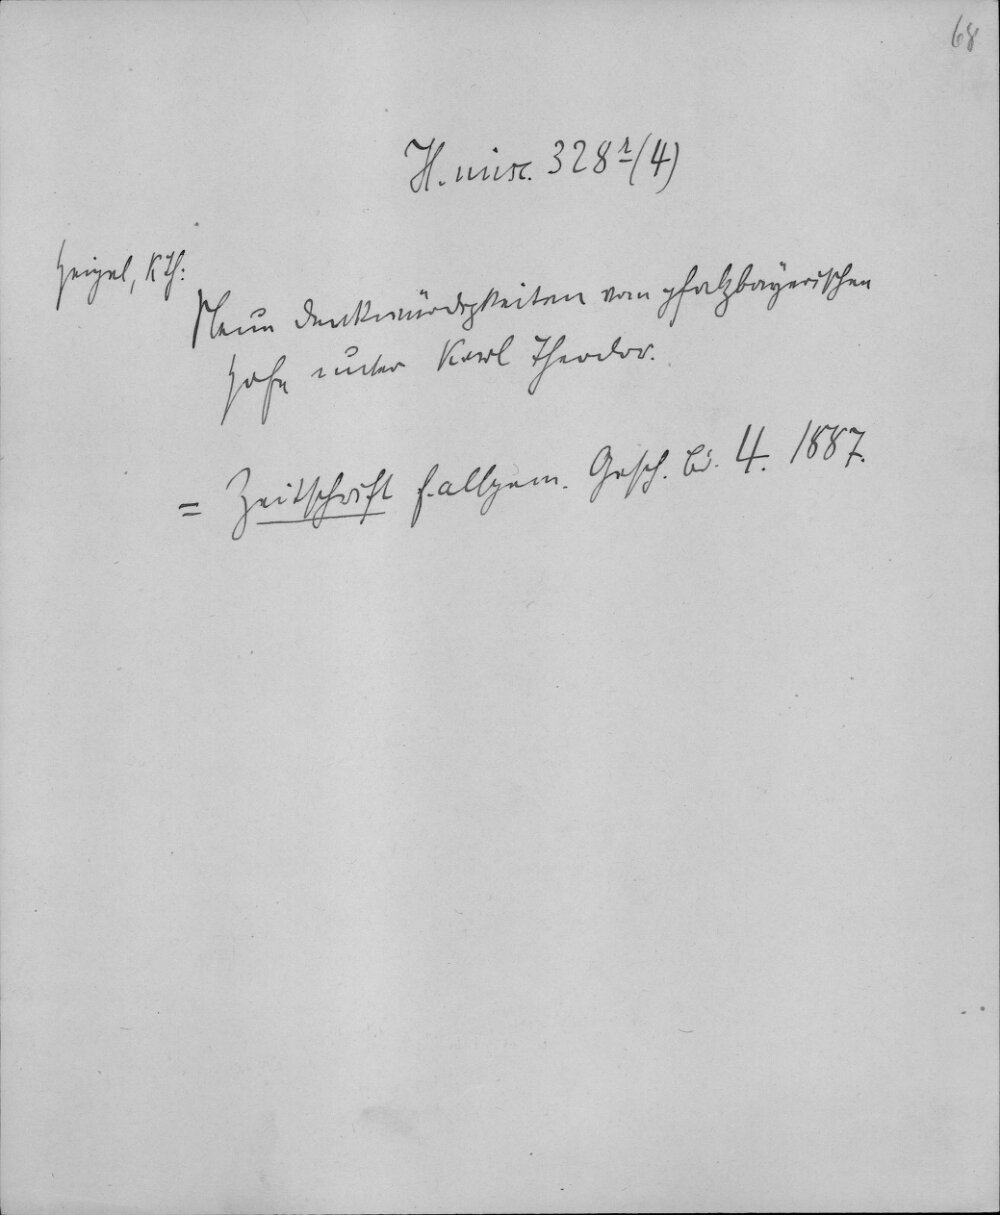 68
H. misc. 328 r (4)
Heigel, K Th:
Neue Denkwürdigkeiten vom pfalzbayerischen
Hofe unter Karl Theodor.
= Zeitschrift f. allgem. Gesch. Bd. 4. 1887.